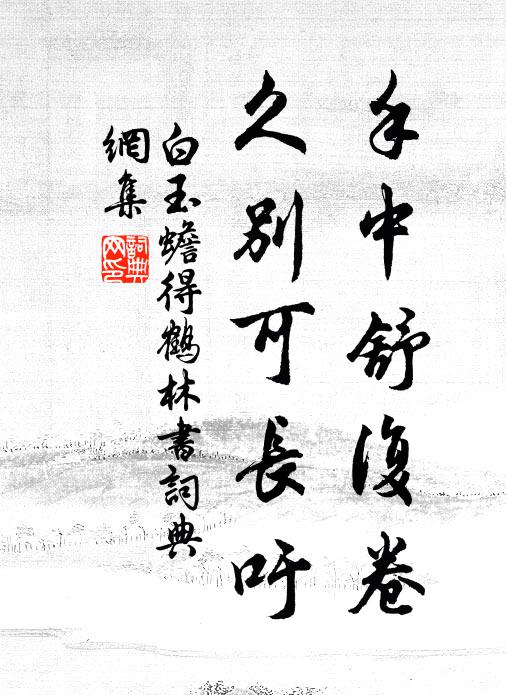 手中舒復卷
久別可長吁
白玉蟾得鶴林書詞典
網集
詞典
网印